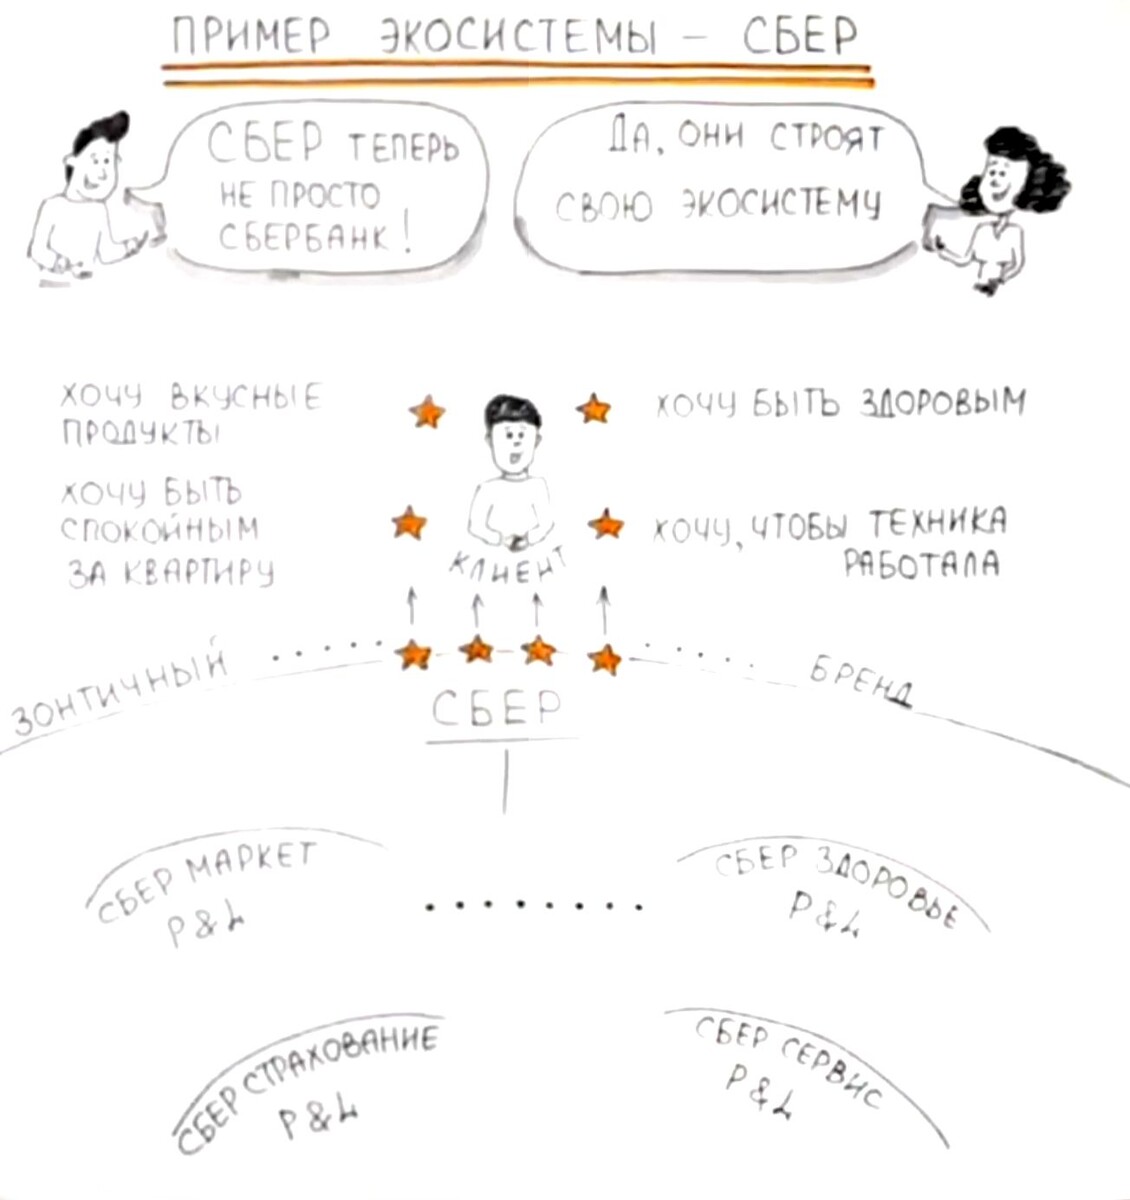 ПРИМЕР ЭКОСИСТЕМЫ – СБЕР
СБЕР ТЕПЕРЬ
НЕ ПРОСТО
СБЕРБАНК!
ДА, ОНИ СТРОЯТ
СВОЮ ЭКОСИСТЕМУ
ХОЧУ ВКУСНЫЕ
ПРОДУКТЫ
ХОЧУ БЫТЬ ЗДОРОВЫМ
ХОЧУ БЫТЬ
СПОКОЙНЫМ
ЗА КВАРТИРУ
ХОЧУ, ЧТОБЫ ТЕХНИКА
РАБОТАЛА
КЛИЕНТ
ЗОНТИЧНЫЙ ..... ..... БРЕНД
СБЕР
СБЕР МАРКЕТ
P & L
........
СБЕР ЗДОРОВЬЕ
P & L
СБЕР СТРАХОВАНИЕ
P & L
СБЕР СЕРВИС
P & L